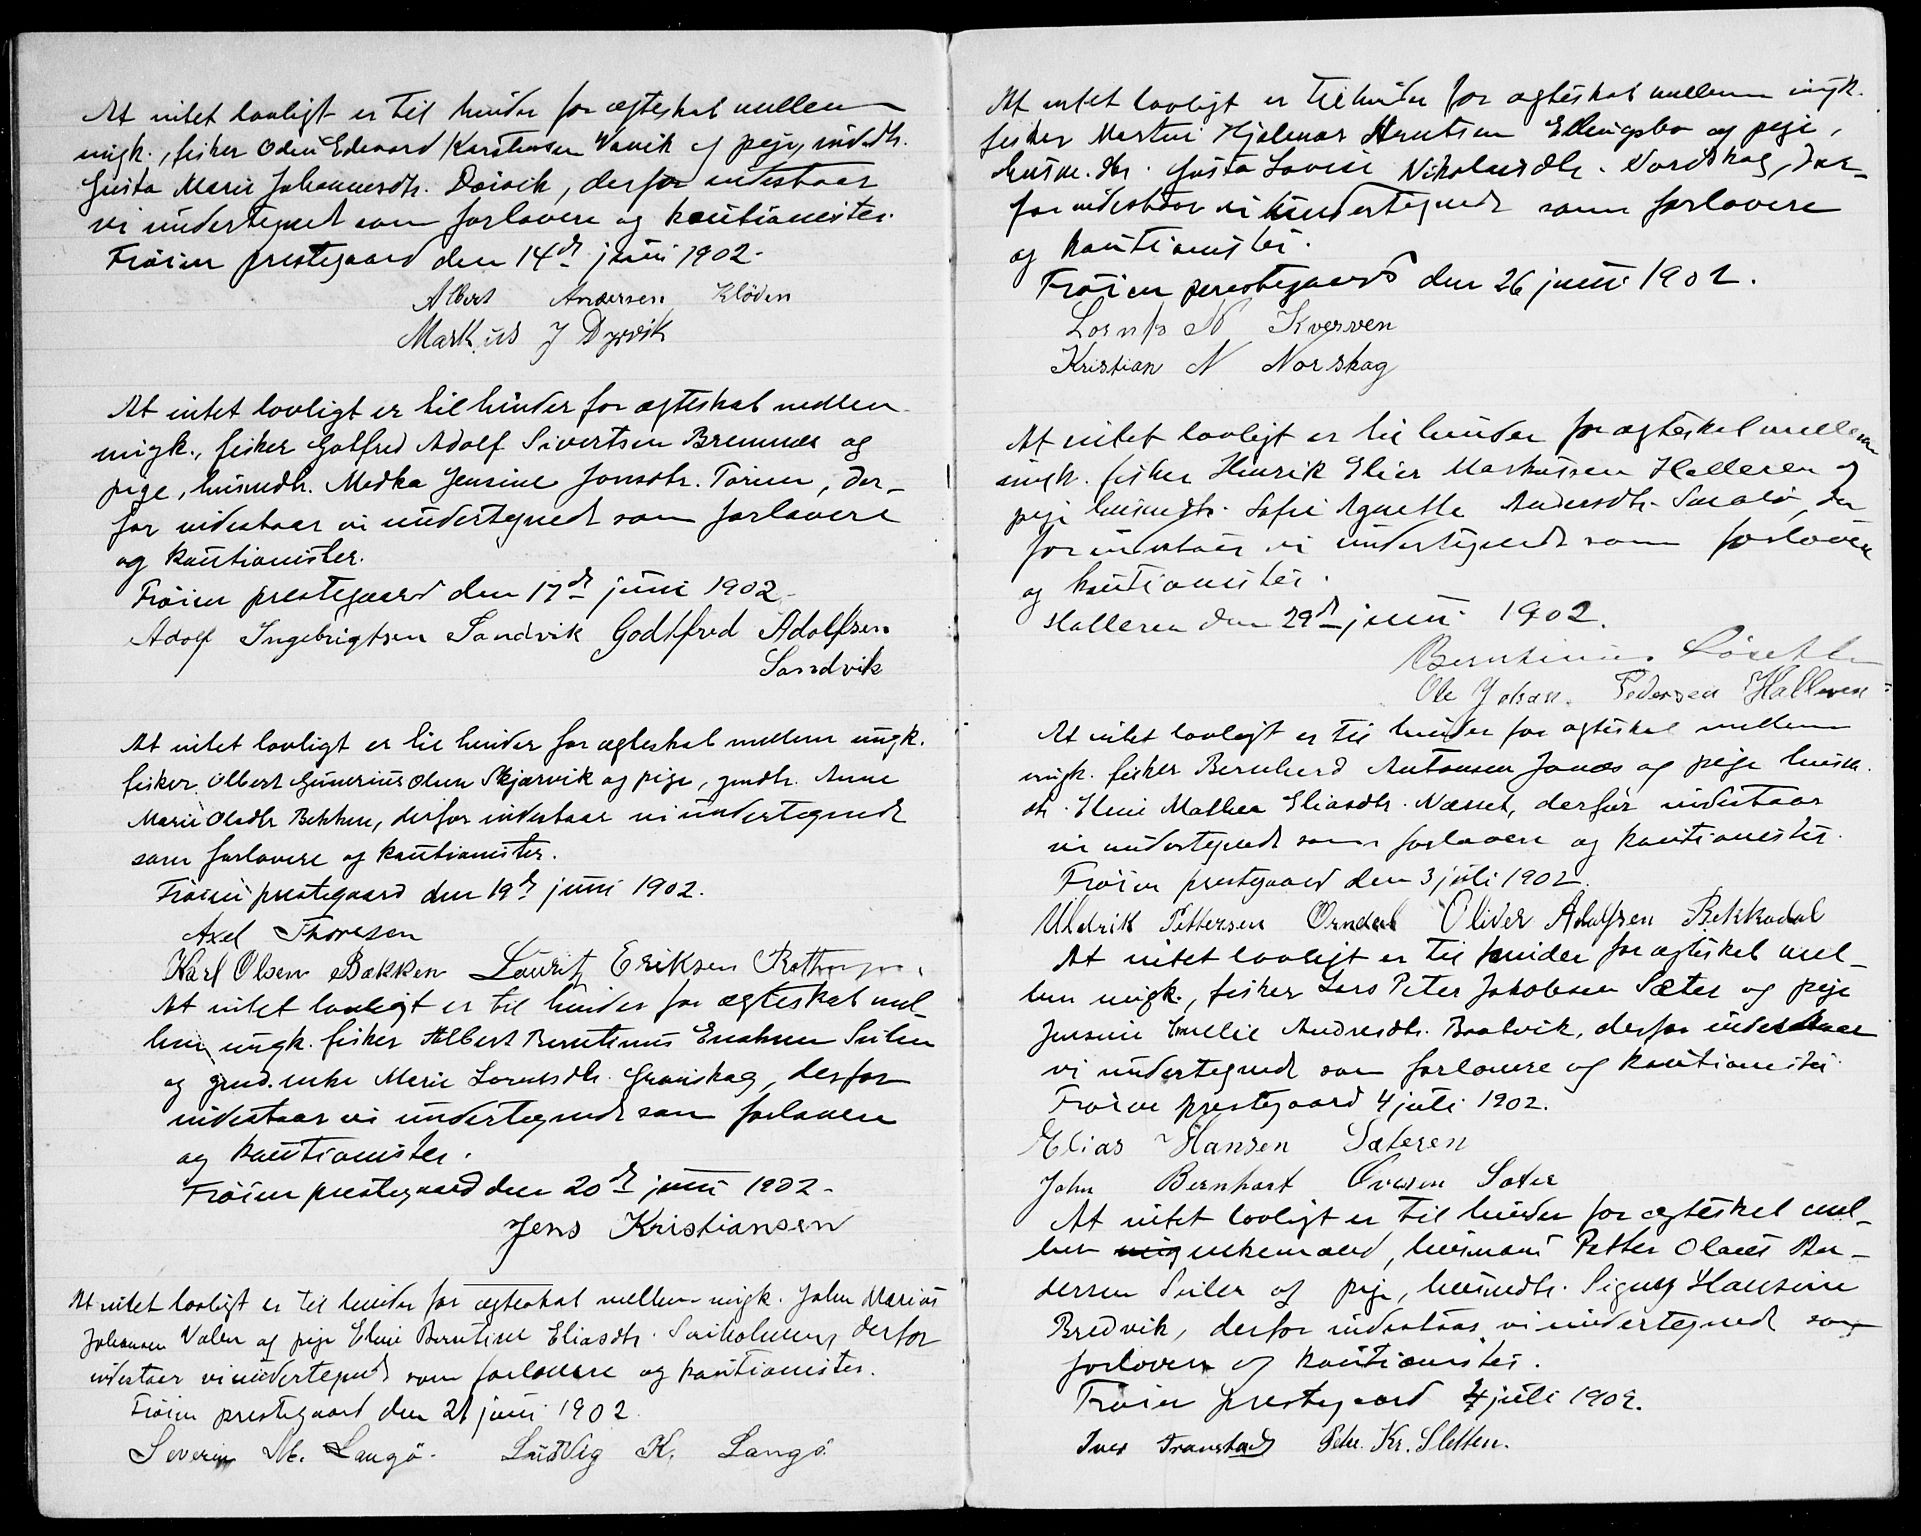 At intet lovligt er til hinder for ægteskab mellem
ungk., fisker Odin Edvard Karstensen Vavik og pige, indrdtr.
Gusta Marie Johannesdtr. Dørvik, derfor indestaar
vi undertegnet som forlovere og kautionister.
Frøien prestegaard den 14de juni 1902.
Albert Andersen Kløden
Markus J Dyrvik
At intet lovligt er til hinder for ægteskab mellem
ungk., fisker Golfred Adolf Sivertsen Bremnes og
pige, husmdtr. Medka Jensine Jonsdtr. Torien, der-
for indestaar vi undertegnede som forlovere
og kautionister.
Frøien prestegaard den 17de juni 1902.
Adolf Ingebrigtsen Sandvik Godtfred Adolfsen
Sandvik
At intet lovligt er til hinder for ægteskab mellem ungk.
fisker Olbert Gunerius Olsen Skjærvik og pige, gmdtr. Anne
Marie Olsdtr Bekken, derfor indestaar vi undertegnede
som forlovere og kautionister.
Frøien prestegaard den 19de juni 1902.
Axel Thoresen
Karl Olsen Bakken Lauritz Eriksen
At intet lovligt er til hinder for ægteskab mel-
lem ungk. fisker Albert Berntinus Enoksen Sulen
og gmd. enke Marie Lornesdtr. Grønskag, derfor
indestaar vi undertegnede som forlovere
og kautionister.
Frøien prestegaard den 20de juni 1902.
Jens Kristiansen
At intet lovligt er til hinder for ægteskab mellem ungk. John Marius
Johansen Valen og pige Eline Berntine Eliasdtr. Sniholmen, derfor
indestaar vi undertegnede som forlovere og kautionister.
Frøien prestegaard den 21 juni 1902
Severin M. Langø. Ludvig K. Langø
At intet lovligt er til hinder for ægteskab mellem ungk.
fisker Martin Hjelmar Knutsen Ellingsbo og pige,
husm. dtr. Gusta Lovise Nikolaisdtr. Nordskag, der-
for indestaar vi undertegnede som forlovere
og kautionister.
Frøien prestegaard den 26 juni 1902.
Lornts N Kverven
Kristian N Norskag
At intet lovligt er til hinder for ægteskab mellem
ungk. fisker Henrik Elier Markussen Halleren og
pige husmdtr. Sofie Agnette Andersdtr. der
for indestaar vi undertegnede som forlovere
og kautionister.
Halleren den 29de juni 1902.
Berntinus
Ole Johan Pedersen Halleren
At intet lovligt er til hinder for ægteskab mellem
ungk. fisker Bernhard Antonsen Jonas og pige husm.
dtr. Eline Mathea Eliasdtr. Næsset, derfor indestaar
vi undertegnede som forlovere og kautionister.
Frøien prestgaard den 3 juli 1902.
Uldrik Pettersen Ørndal Oliver Adolfsen Bekkadal
At intet lovligt er til hinder for ægteskab mel-
lem ungk., fisker Lars Peter Jakobsen Sæter og pige
Jensine Emelie Andresdtr. Bratvik, derfor indestaar
vi undertegnede som forlovere og kautionister.
Frøien prestegaard 4 juli 1902.
Elias Hansen Sæteren
John Bernhart Ovesen Sæter
At intet lovligt er til hinder for ægteskab mel-
lem enkemand, husmand Petter Olaus Per-
dersen Sulen og pige, husmdtr. Signy Hansine
Bredvik, derfor indestaar vi undertegnede som
forlovere og kautionister.
Frøien prestegaard 4 juli 1902.
Iver Transtad Petr. Kr. Sletten.